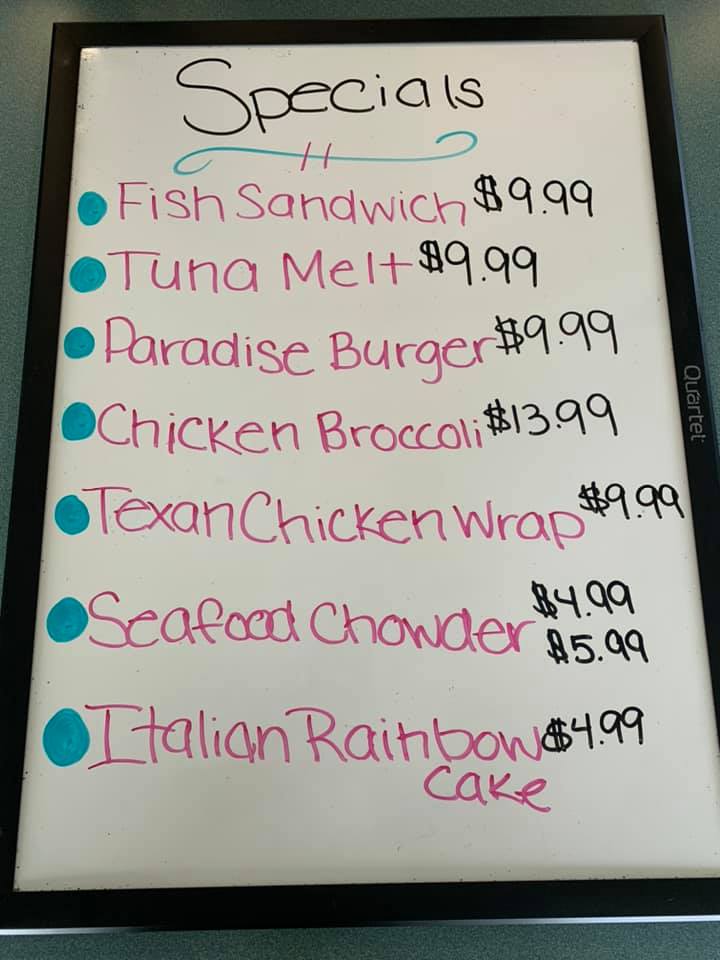 Specials
Fish Sandwich $9.99
Tuna Melt $9.99
Paradise Burger $9.99
Chicken Broccoli $13.99
Texan Chicken Wrap $9.99
Seafood Chowder $4.99
$5.99
Italian Rainbow $4.99
Cake
Quartet